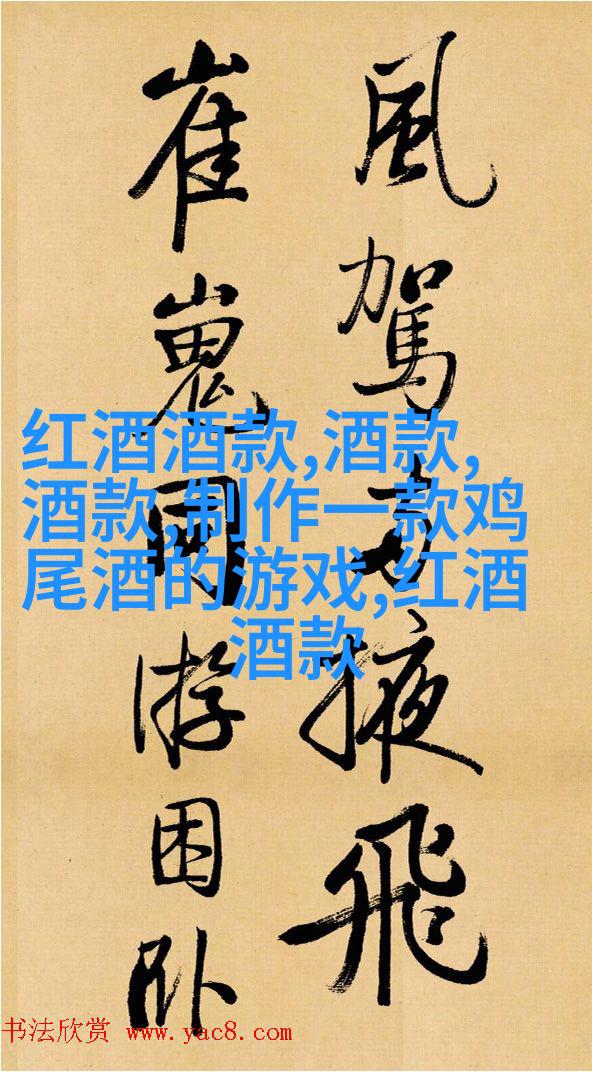 風駕掖飛
崔嵬游困卧
红酒酒款,酒款,
酒款,制作一款鸡
尾酒的游戏,红酒
酒款
书法欣赏 www.yac8.com